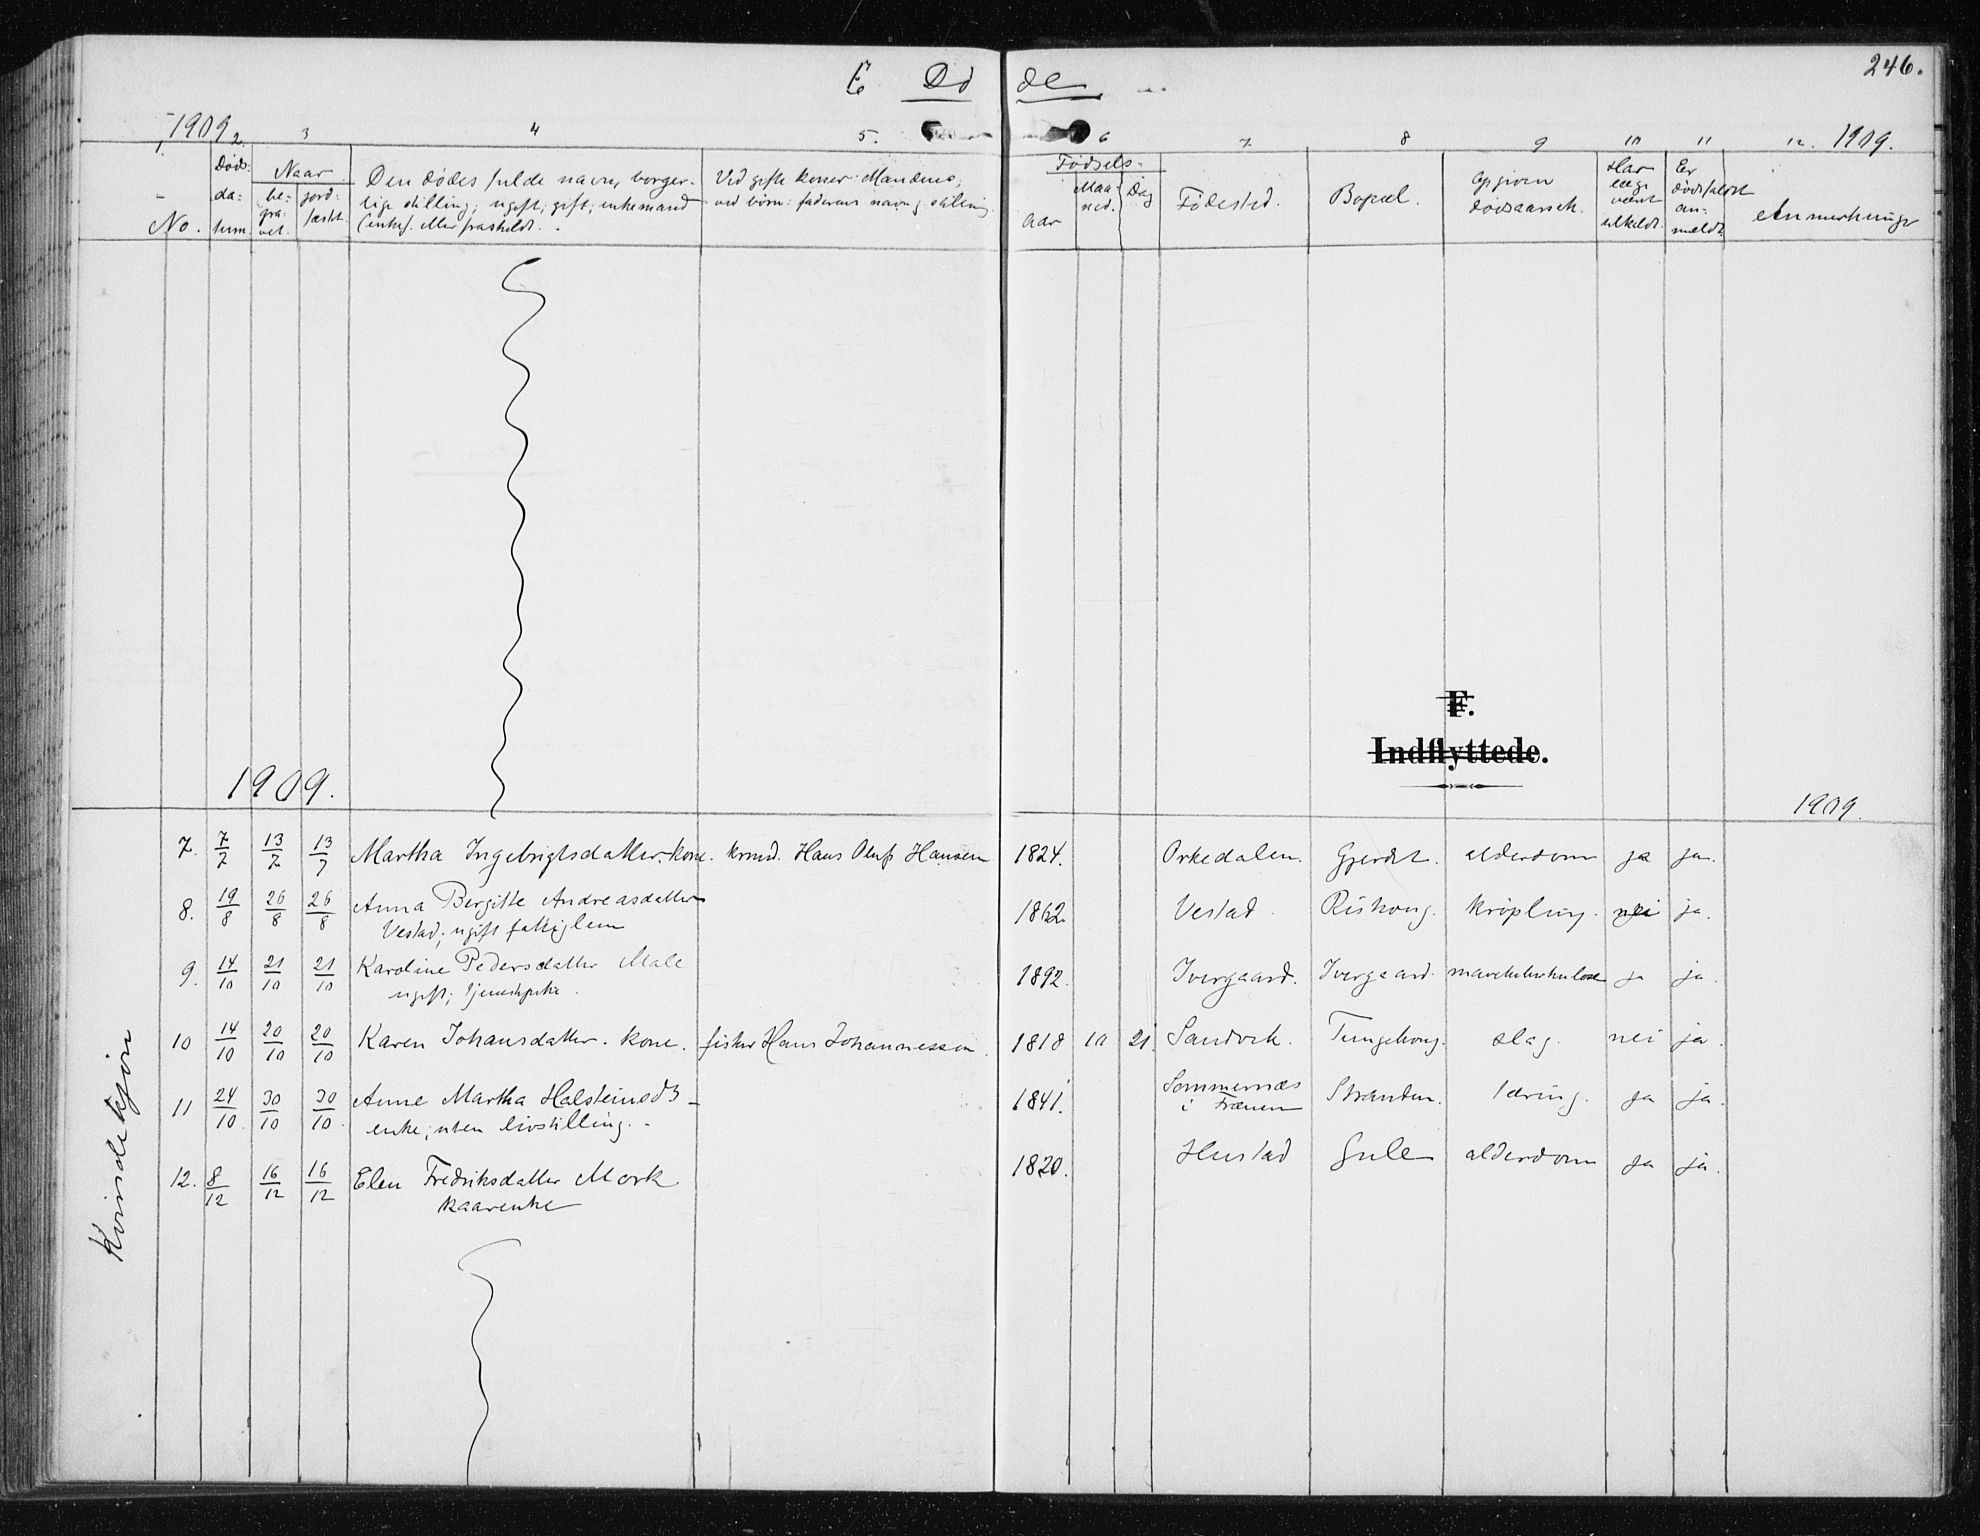 246.
E Dø de
1909 1909.
1. 2. 3 4 5. 6 7 8 9 10 11 12.
No.
Døds-
da-
tum
Naar
be-
gra-
vet.
jord-
fæstet
Den dødes fulde navn, borger-
lige stilling; ugift, gift, enkemand
(enke) eller fraskildt.
Ved gifte koner: Mandens,
ved børn: faderens navn og stilling
Fødsels-
Aar
Maa-
ned.
Dag
Fødested.
Bopæl.
Opgiven
dødsaarsak.
Har
læge
været
tilkaldt.
Er
dødsfaldet
an-
meldt.
Anmerkninger
F.
Indflyttede.
1909. 1909
Kvindekjøn
7. 7/7 13/7 13/7 Martha Ingebrigtsdatter. kone. krmd. Hans Oluf Hansen 1824. Orkedalen. Gjerdet. alderdom ja ja.
8. 19/8 26/8 26/8 Anna Bergitte Andreasdatter 1862. Vestad. Riskong. krøpling. nei ja.
Vestad; ugift fattiglem
9. 14/10 21/10 21/10 Karoline Pedersdatter Male 1892. Ivergaard. Ivergaard. ja ja.
ugift; tjenestpike.
10 14/10 20/10 20/10 Karen Johansdatter. kone. fisker Hans Johannessen. 1818 10 21. Sandvik. Tungehoug. slag. nei ja.
11 24/10 30/10 30/10 Anne Martha Halsteinsd3 1841. Sommernæs Stranden. tæring. ja ja.
enke; uten livsstilling. i Frænen
12. 8/12 16/12 16/12 Elen Fredriksdatter Mork 1820. Hustad Gule alderdom ja ja.
kaarenke